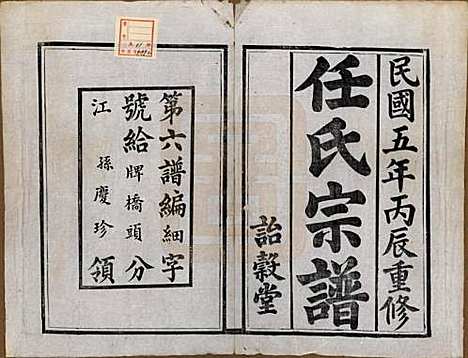 民國五年丙辰重修
任氏宗譜
詒穀堂
第六譜編細字
號給牌橋頭分
江孫慶珍領